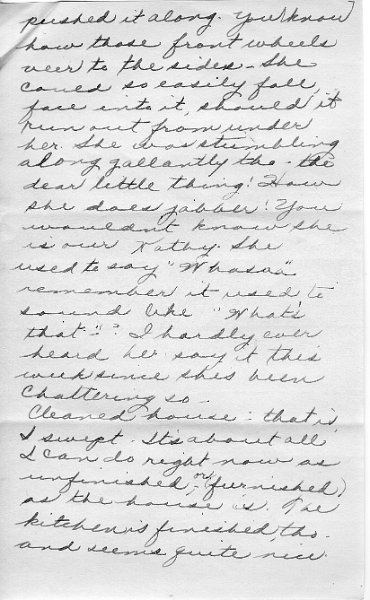 pushed it along. You know
how those front wheels
veer to the sides - She
could so easily fall,
face into it, should it
run out from under
her. She was stumbling
along gallantly tho - the
dear little thing! How
she does jabber! You
wouldn't know she
is our Kathy. She
used to say "Whasaa"
remember it used to
sound like "What's
that"? I hardly ever
heard her say it this
week since shes been
chattering so.
Cleaned house: that is,
I swept. It's about all
I can do right now as
unfinished, or (furnished)
as the house is. The
kitchen is finished, tho.
and seems quite nice